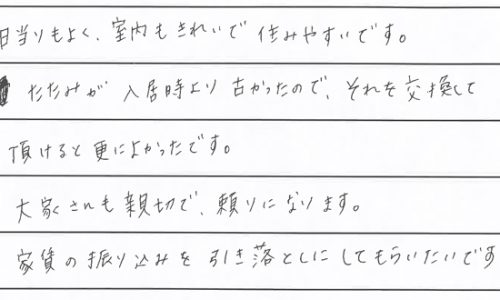 日当りもよく、室内もきれいで住みやすいです。
たたみが入居時より古かったので、それを交換して
頂けると更によかったです。
大家さんも親切で、頼りになります。
家賃の振り込みを引き落としにしてもらいたいです